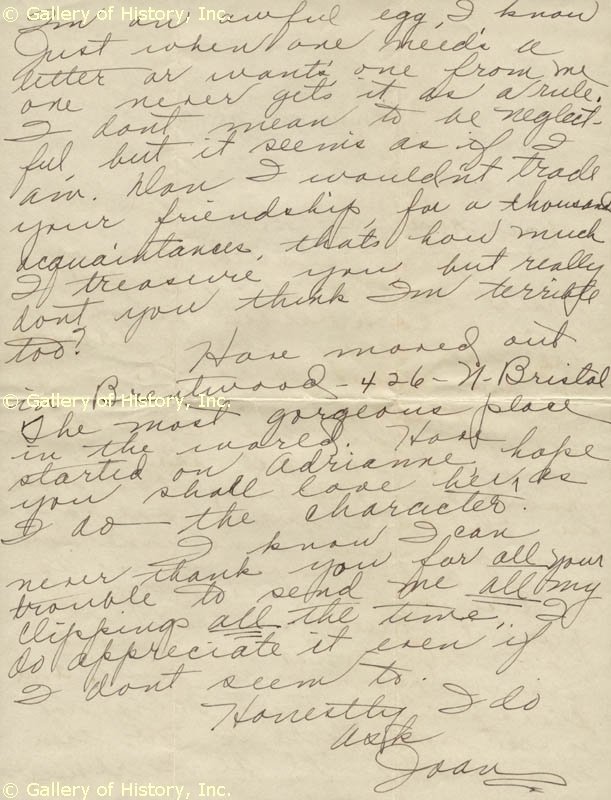 © Gallery of History, Inc.
I'm an awful egg, I know
Just when one needs a
letter or wants one from me
one never gets it as a rule.
I dont mean to be neglect-
ful but it seems as if I
am. Dan I wouldn't trade
your friendship for a thousand
acquaintances, thats how much
I treasure you but really
dont you think I'm terrible
too?
Have moved out
in Brentwood - 426 - N - Bristol
© Gallery of History, Inc.
The most gorgeous place
in the world. Have
started on Adrianne, hope
you shall love her, as
I do - the character.
I know I can
never thank you for all your
trouble to send me all my
clippings all the time, I
do appreciate it even if
I dont seem to.
Honestly I do
ask
Joan
© Gallery of History, Inc.
© Gallery of History, Inc.